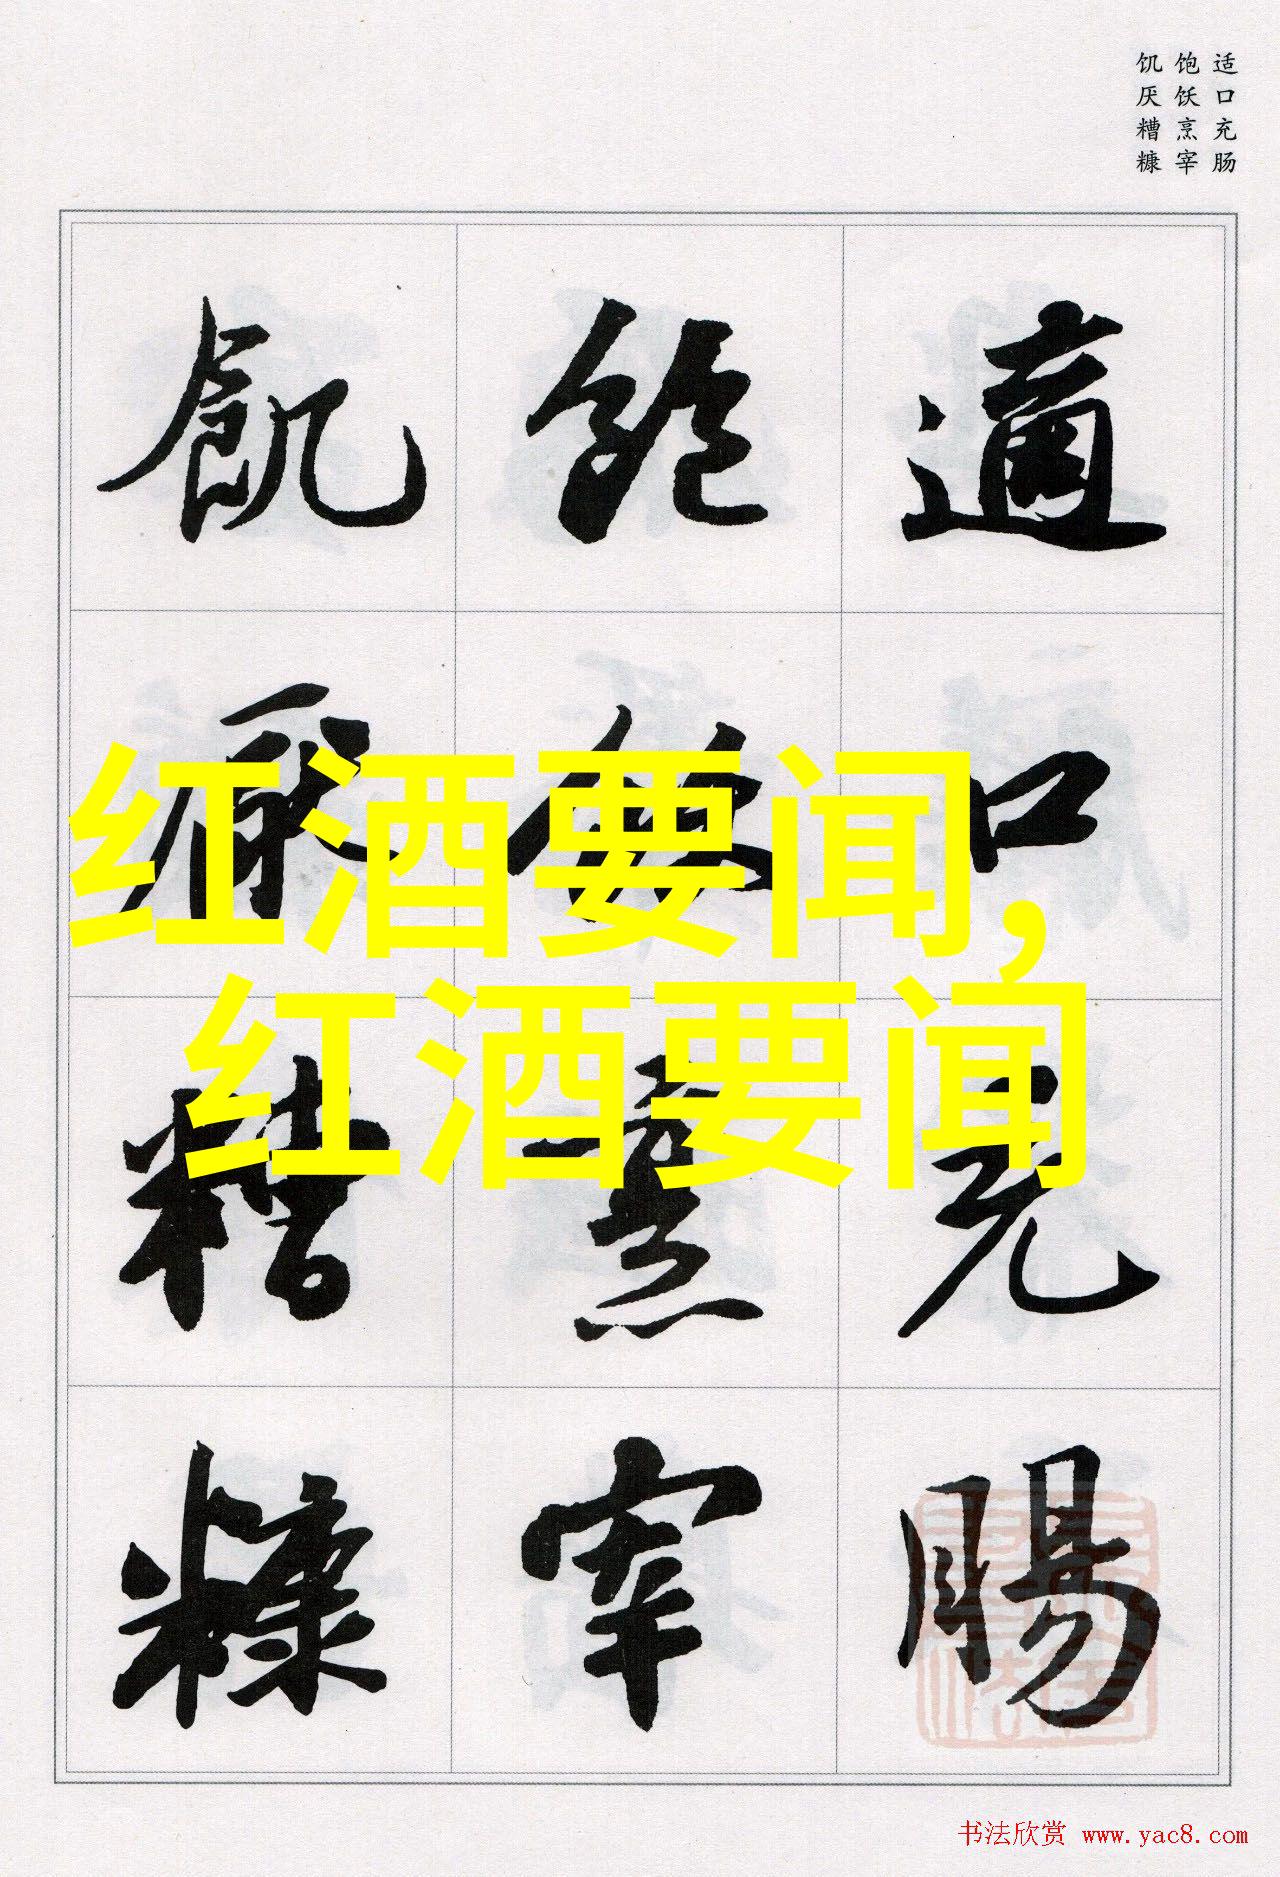 适口充肠
饱饫烹宰
饥厌糟糠
適口充腸
飽飫烹宰
飢厭糟糠
红酒要闻,
红酒要闻
书法欣赏 www.yac8.com